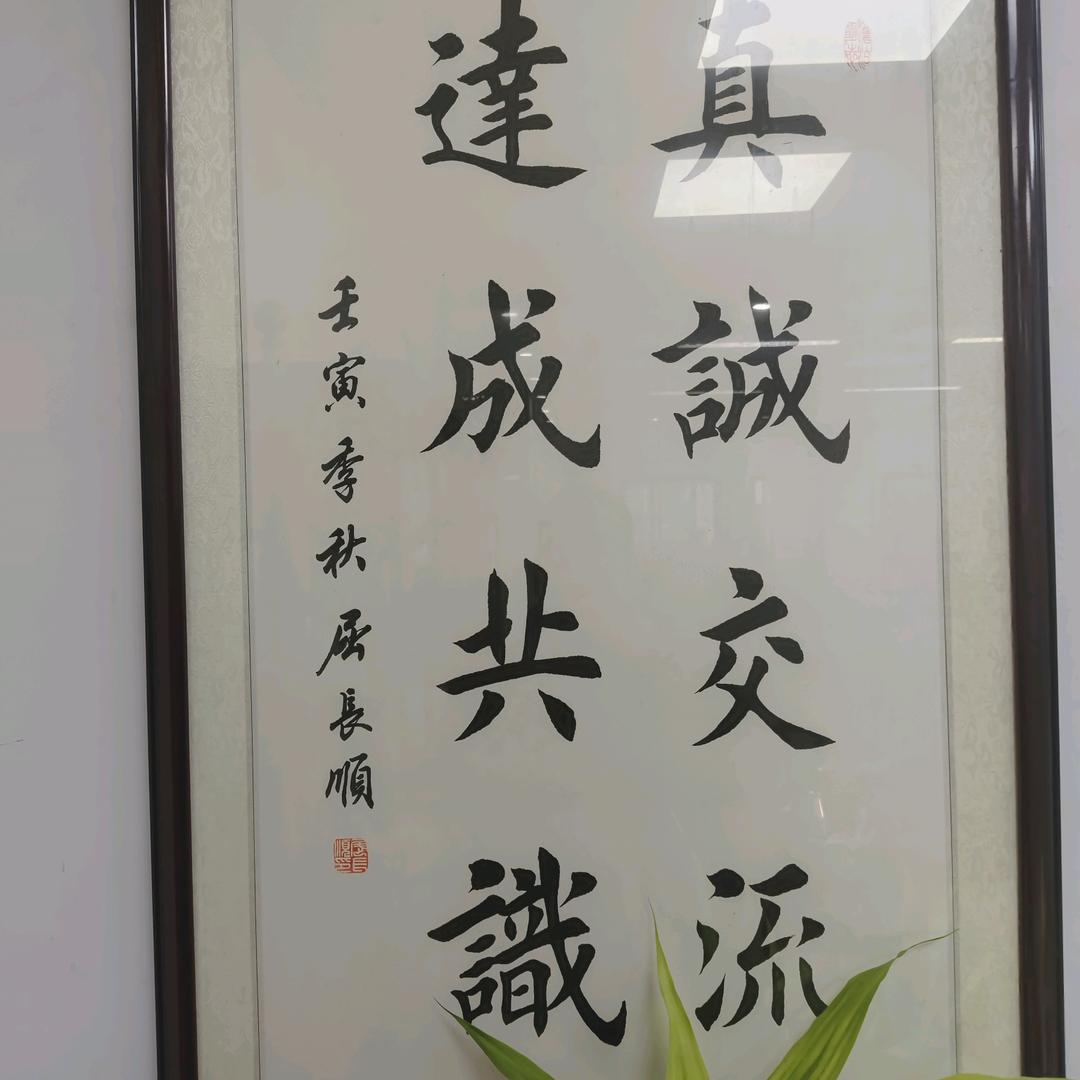 真誠交流
達成共識
壬寅季秋屈長順